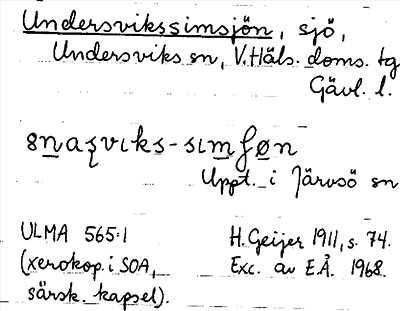 Undersvikssimsjön, sjö,
Undersviks sn, V.Häls. doms. tg
Gävl. l.
Uppt. i Järvsö sn
ULMA 565:1
(xerokop. i SOA,
särsk. kapsel).
H. Geijer 1911, s. 74.
Exc. av E.Å. 1968.